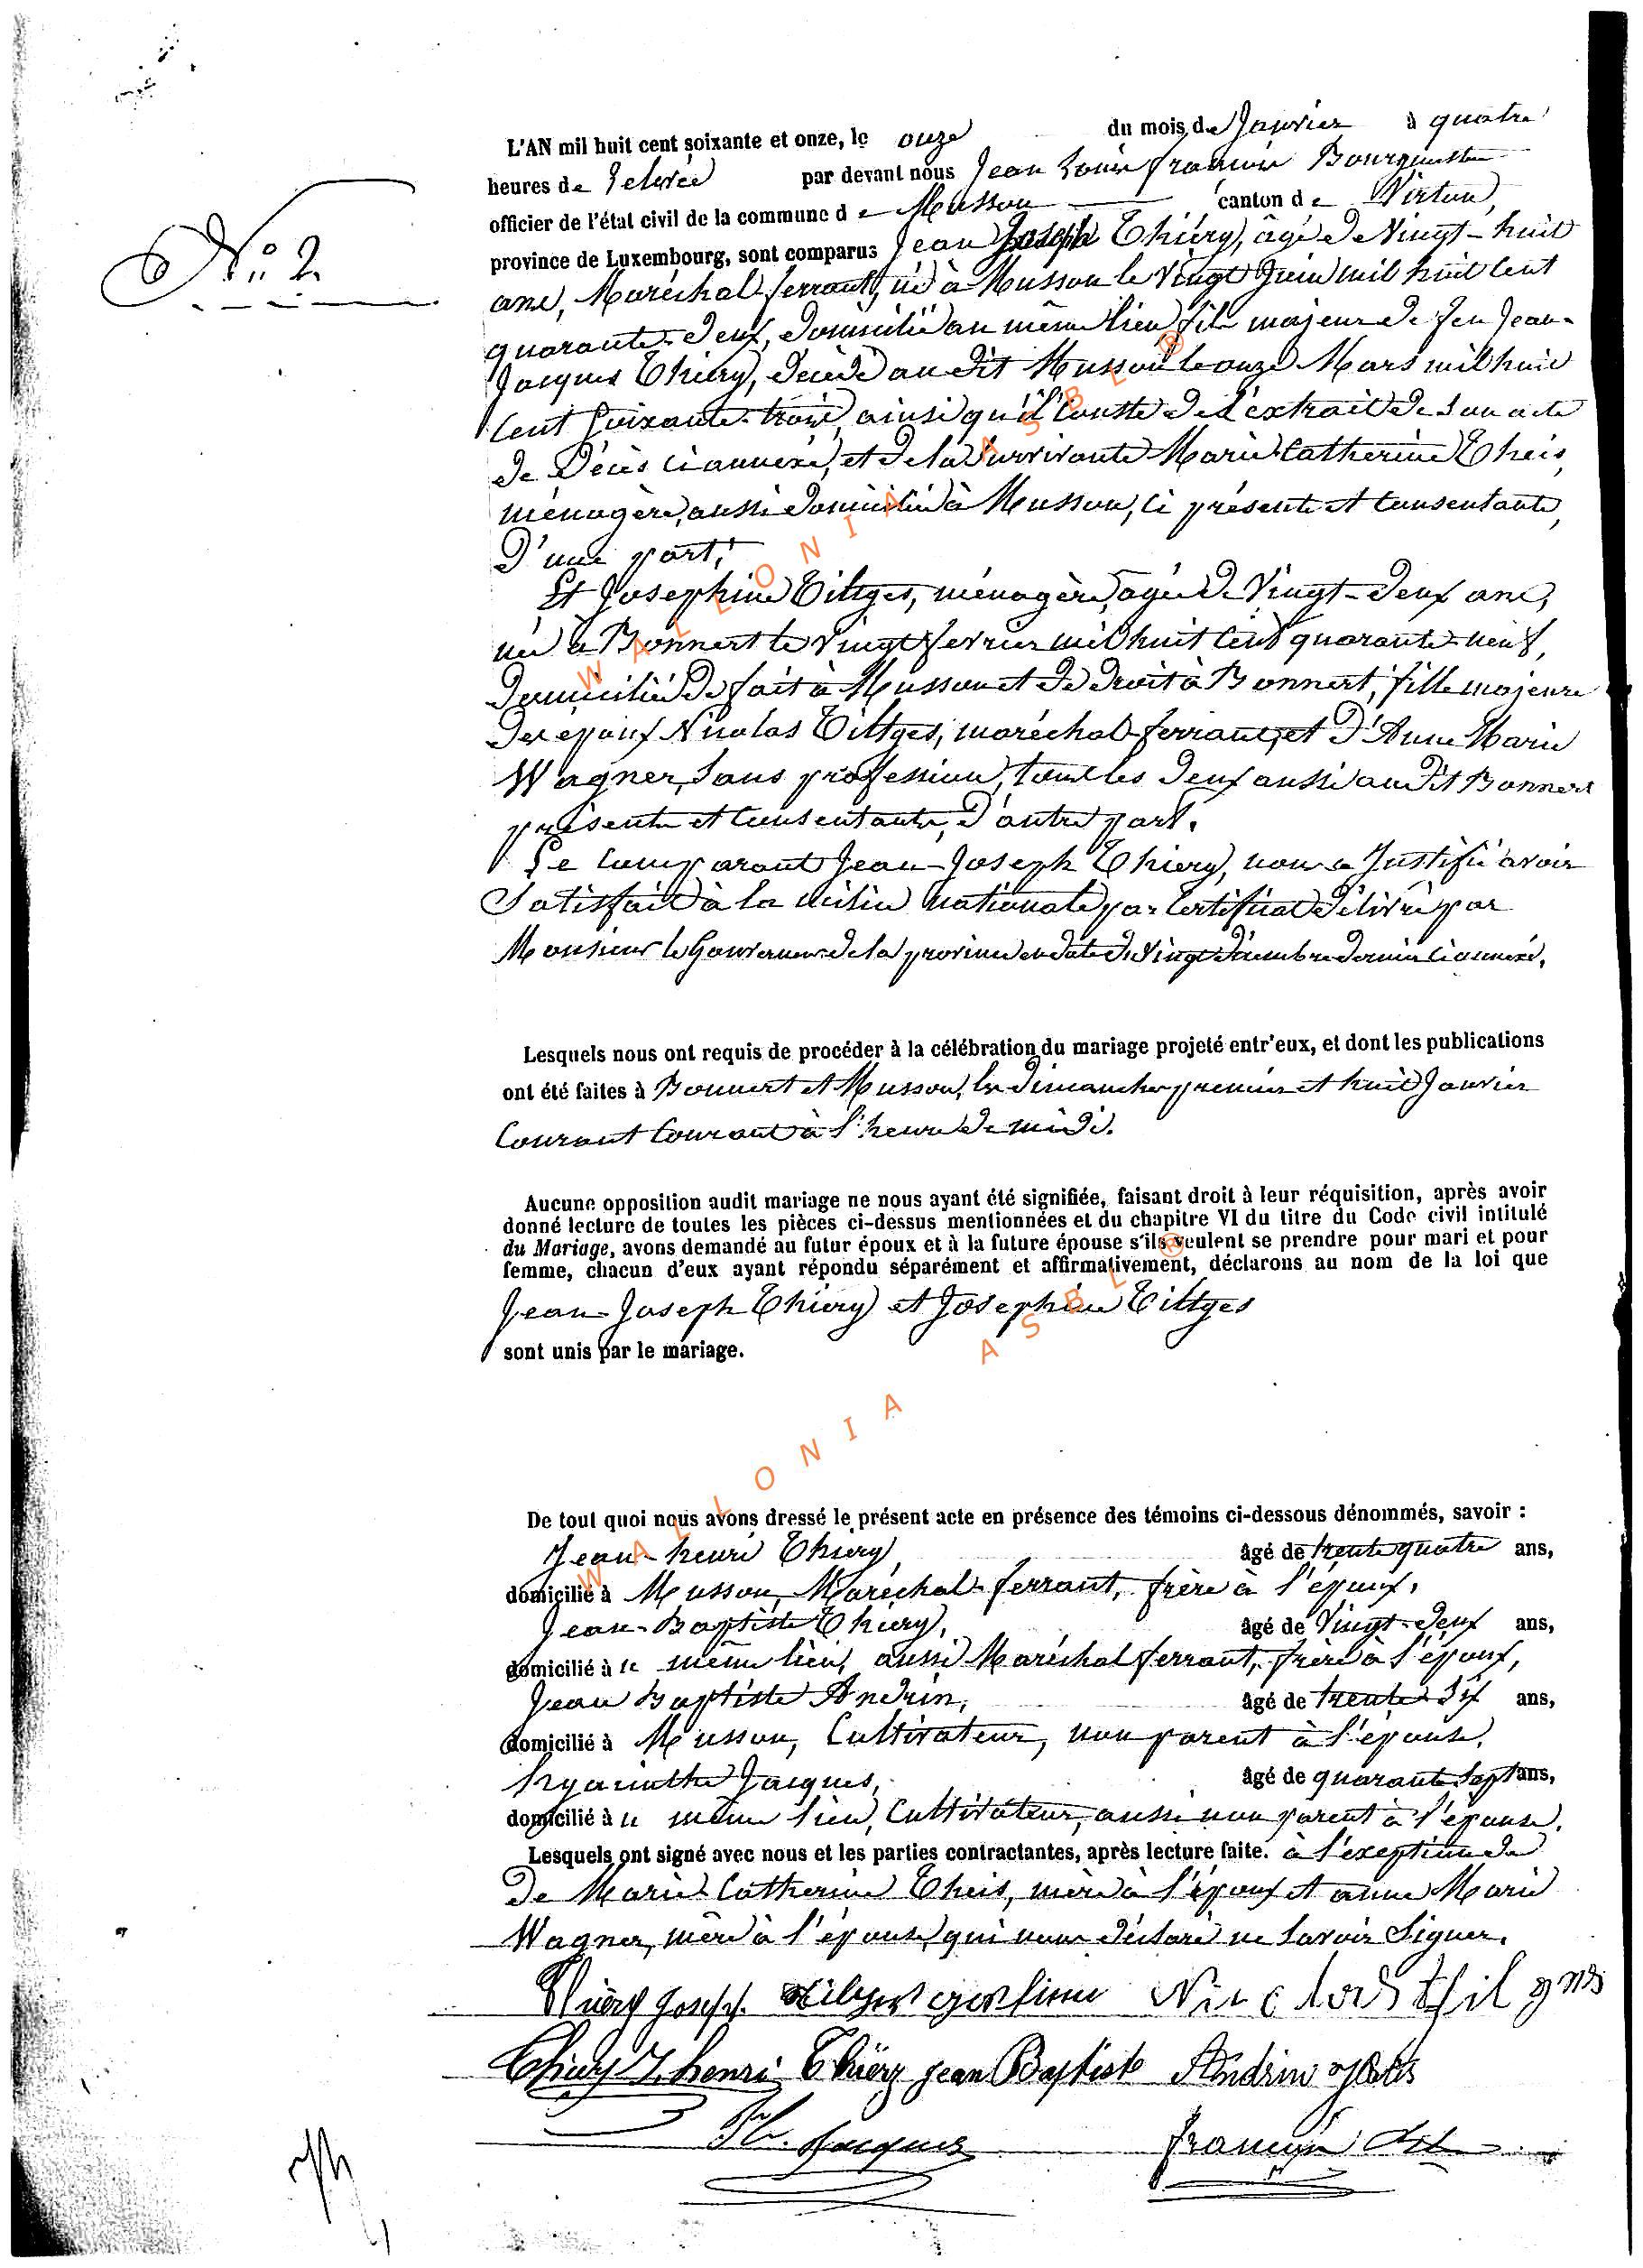 L'AN mil huit cent soixante et onze, le onze du mois de Janvier à quatre
heures de relevée par devant nous Jean Louis François
officier de l'état civil de la commune de Musson canton de Virton,
province de Luxembourg, sont comparus Jean Joseph Thiéry, âgé de Vingt-huit
ans, Maréchal-ferrant, né à Musson le Vingt Juin mil huit cent
quarante-deux, domicilié au même lieu, fils majeur de feu Jean-
Jacques Thiéry, décédé au dit Musson le onze Mars mil huit
cent soixante-trois, ainsi qu'il conste de l'extrait de son acte
de Décès ci annexé, et de la survivante Marie Catherine Theis,
ménagère, aussi domiciliée à Musson, ci présente et consentante,
D'une part;
Et Josephine Tiltges, ménagère, agée de Vingt-deux ans,
née à Bonnert le vingt fevrier mil huit cent quarante-neuf,
domiciliée de fait à Musson et de droit à Bonnert, fille majeure
des époux Nicolas Tiltges, maréchal-ferrant, et d'Anne Marie
Wagner, sans profession, tous les deux aussi au dit Bonnert
présents et consentants, d'autre part.
Le comparant Jean-Joseph Thiery, nous a Justifié avoir
Satisfait à la milice nationale par Certificat délivré par
Monsieur le Gouverneur de la province en date du Vingt décembre dernier ci annexé.
N° 2
Lesquels nous ont requis de procéder à la célébration du mariage projeté entr'eux, et dont les publications
ont été faites à Bonnert et Musson, les dimanches premier et huit Janvier
Courant Courant à l'heure de midi.
Aucune opposition audit mariage ne nous ayant été signifiée, faisant droit à leur réquisition, après avoir
donné lecture de toutes les pièces ci-dessus mentionnées et du chapitre VI du titre du Code civil intitulé
du Mariage, avons demandé au futur époux et à la future épouse s'ils veulent se prendre pour mari et pour
femme, chacun d'eux ayant répondu séparément et affirmativement, déclarons au nom de la loi que
Jean-Joseph Thiéry et Josephine Tiltges
sont unis par le mariage.
De tout quoi nous avons dressé le présent acte en présence des témoins ci-dessous dénommés, savoir :
Jean-henri Thiéry, âgé de trente quatre ans,
domicilié à Musson, Maréchal-ferrant, frère à l'époux,
Jean-Baptiste Thiéry, âgé de Vingt-deux ans,
domicilié à ce même lieu, aussi Maréchal ferrant, frère à l'époux,
Jean Baptiste Andrin, âgé de trente Six ans,
domicilié à Musson, Cultivateur, non parent à l'épouse,
hyacinthe Jacques, âgé de quarante Sept ans,
domicilié à ce même lieu, Cultivateur, aussi non parent à l'épouse.
Lesquels ont signé avec nous et les parties contractantes, après lecture faite. à l'exeption de
de Marie Catherine Theis, mère à l'époux et anne Marie
Wagner, mère à l'épouse, qui nous déclaré ne savoir Signer.
Thiéry Joseph
Thiery J. henri Thiéry jean Baptiste Andrin
H. Jacques
WALLONIA ASBL ®
WALLONIA ASBL ®